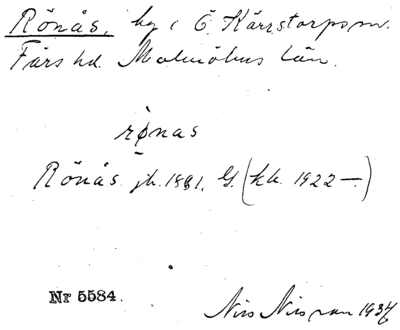 Rönås, by i Ö. Kärrstorps sn.
Färs hd. Malmöhus län.
rø̀nas
Rönås jb. 1881, G. (kb. 1922 —)
Nr 5584.
Nils Nilsson 1937